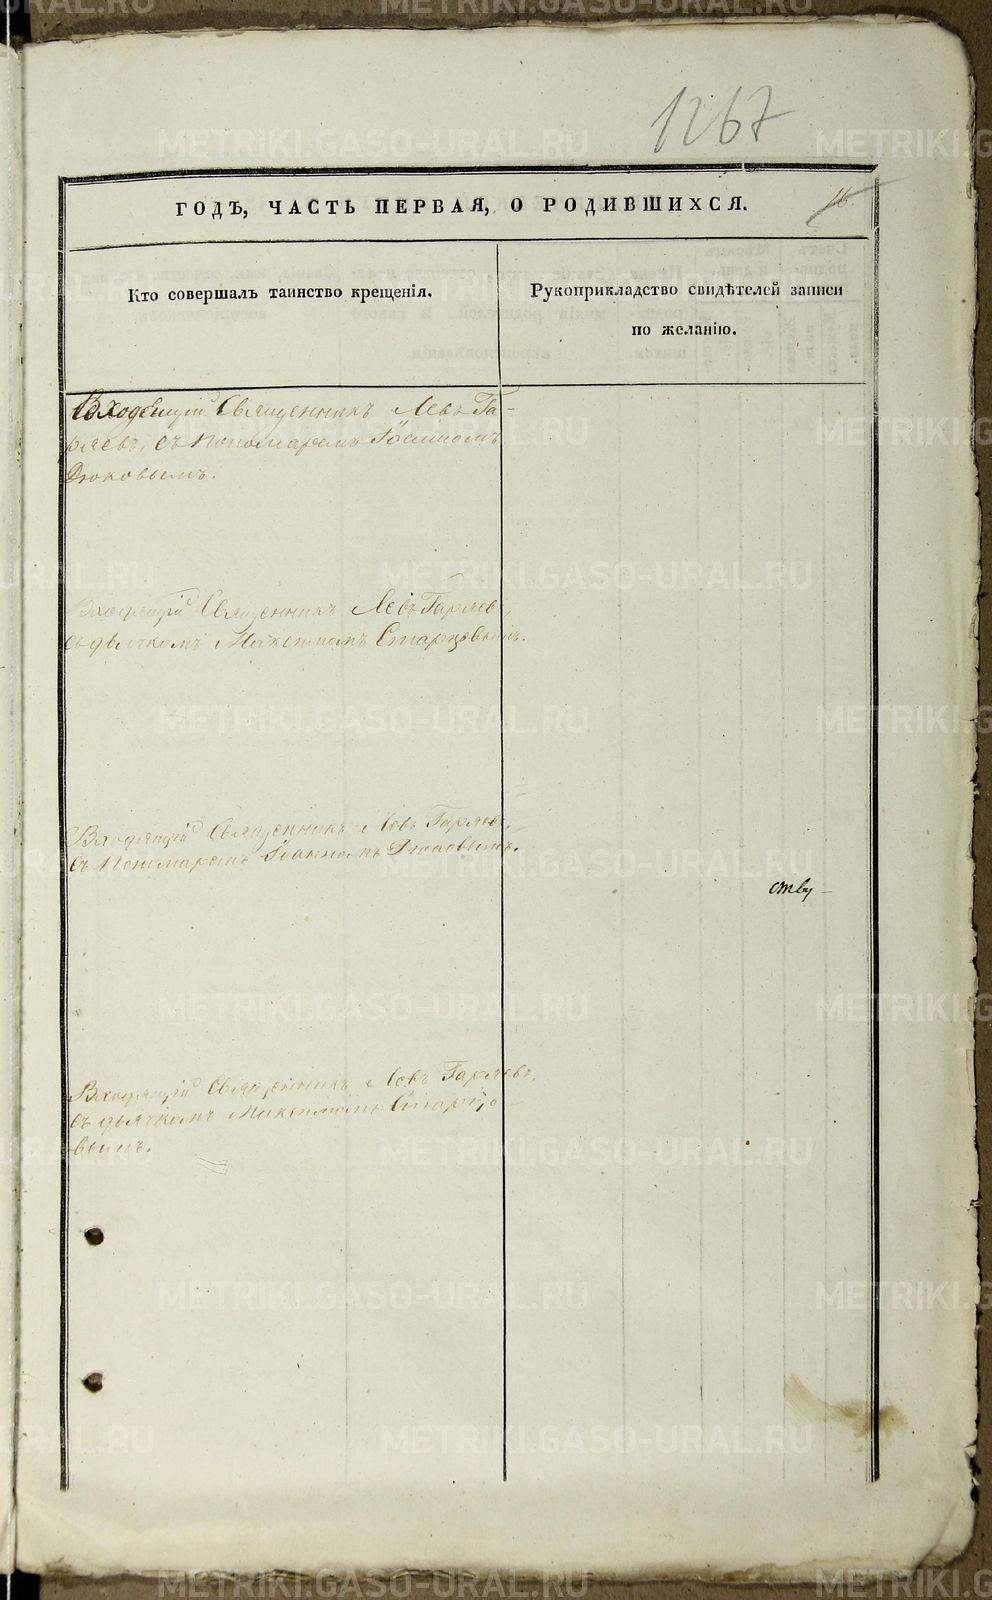 1267
ГОДЪ, ЧАСТЬ ПЕРВАЯ, О РОДИВШИХСЯ.
16.
Кто совершалъ таинство крещенія.
Рукоприкладство свидѣтелей записи
по желанію.
Священникъ Левъ Га-
ряевъ, съ Пономаремъ
Входящій Священникъ Левъ Гаряевъ,
съ дьячкомъ Максимомъ Старцовымъ.
Входящій Священникъ Левъ Гаряевъ,
съ Пономаремъ Іоанномъ
ству —
Входящій Священникъ Левъ Гаряевъ,
съ дьячкомъ Максимомъ Старцо-
вымъ.
METRIKI.GASO-URAL.RU